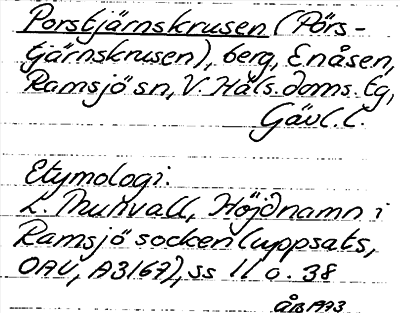 Porstjärnskrusen (Pörs-
tjärnskrusen), berg, Enåsen,
Ramsjö sn, V. Häls. doms. tg,
Gävl. l.
Etymologi:
L. Nunvall, Höjdnamn i
Ramsjö socken (uppsats,
OAU, A3167), ss 11 o. 38